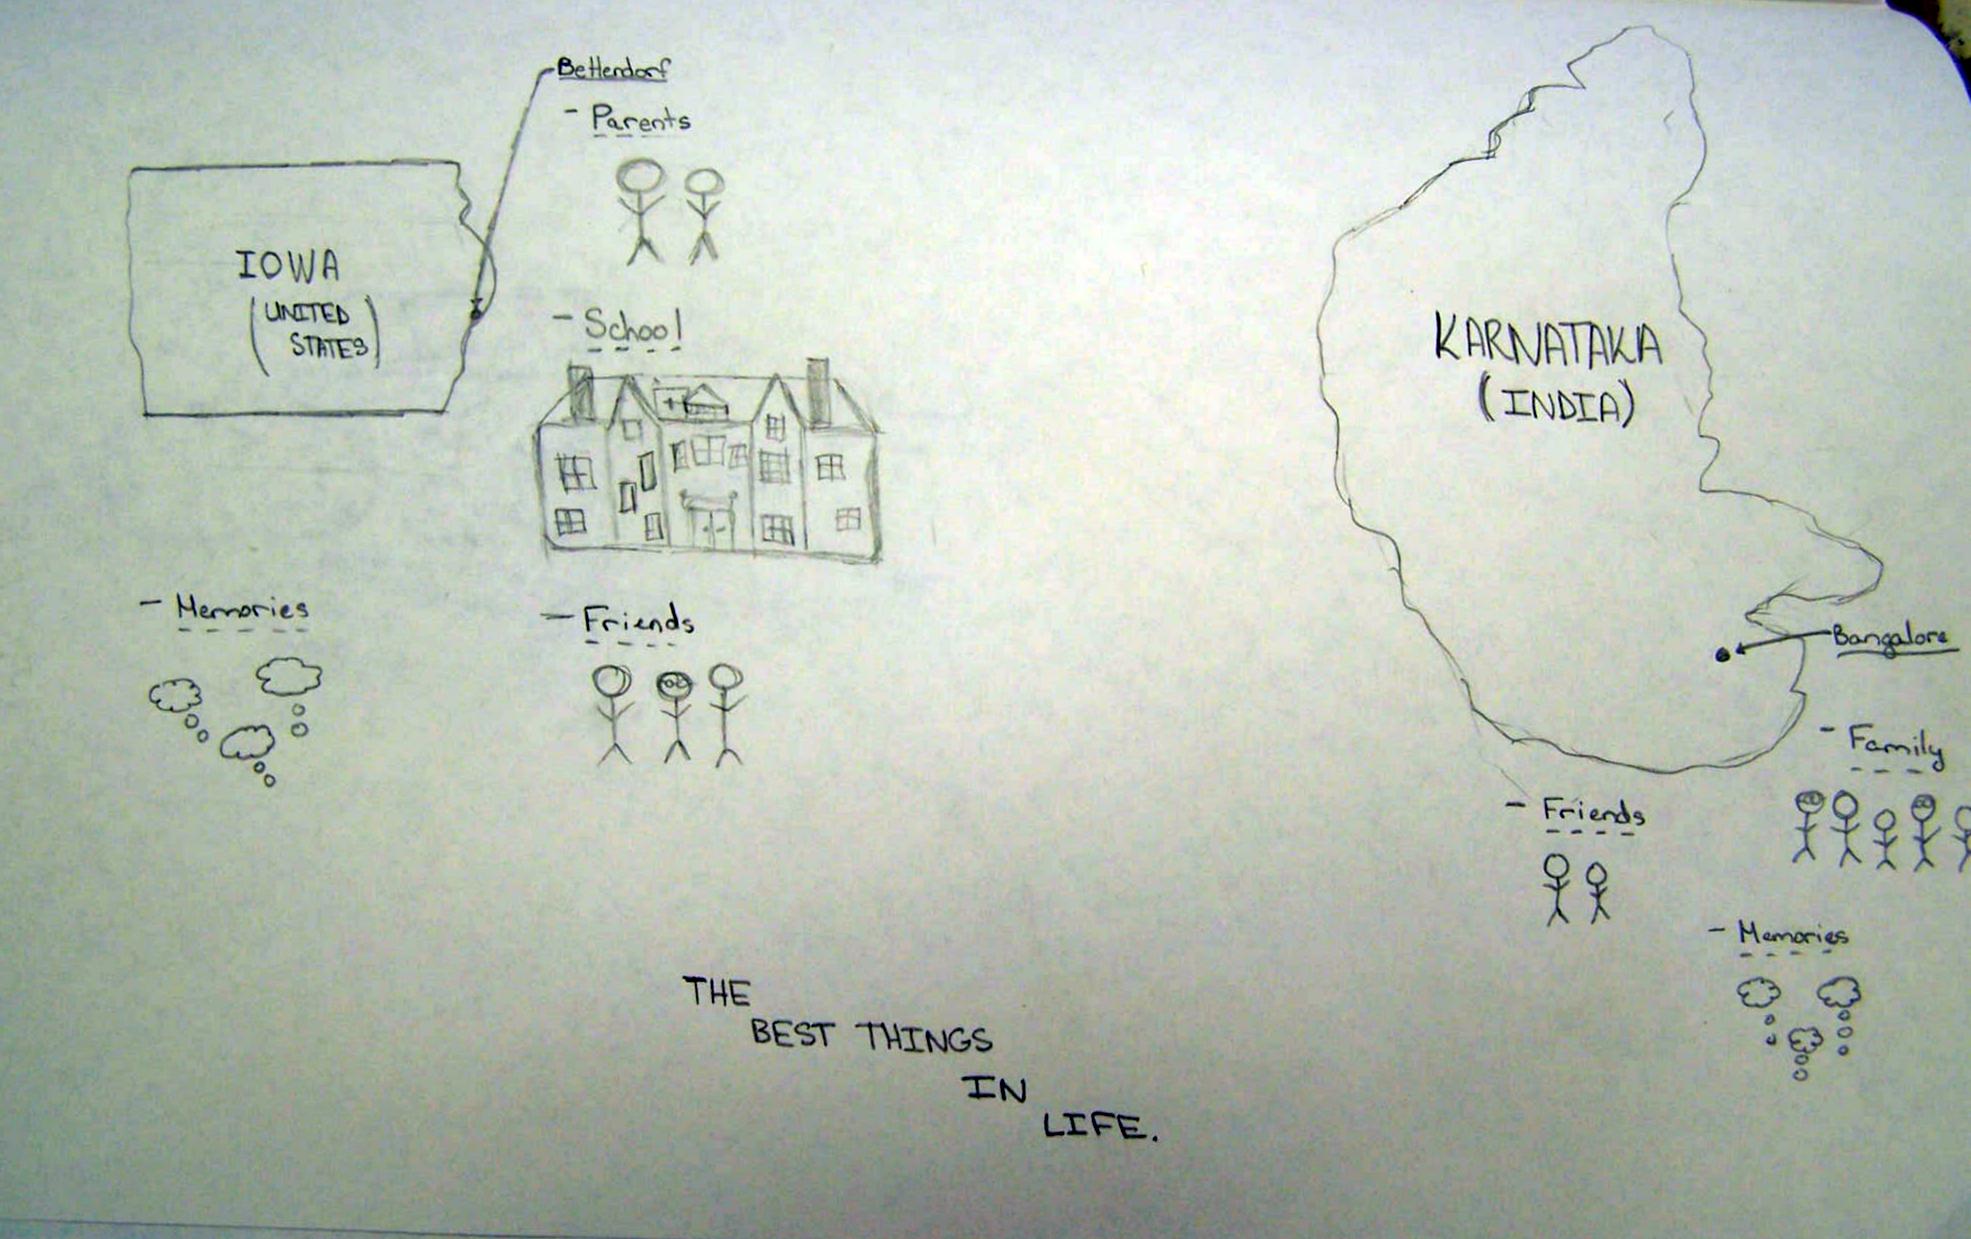 Bettendorf
- Parents
IOWA
(UNITED
STATES)
- School
- Memories
- Friends
KARNATAKA
(INDIA)
Bangalore
- Family
- Friends
- Memories
THE
BEST THINGS
IN
LIFE.